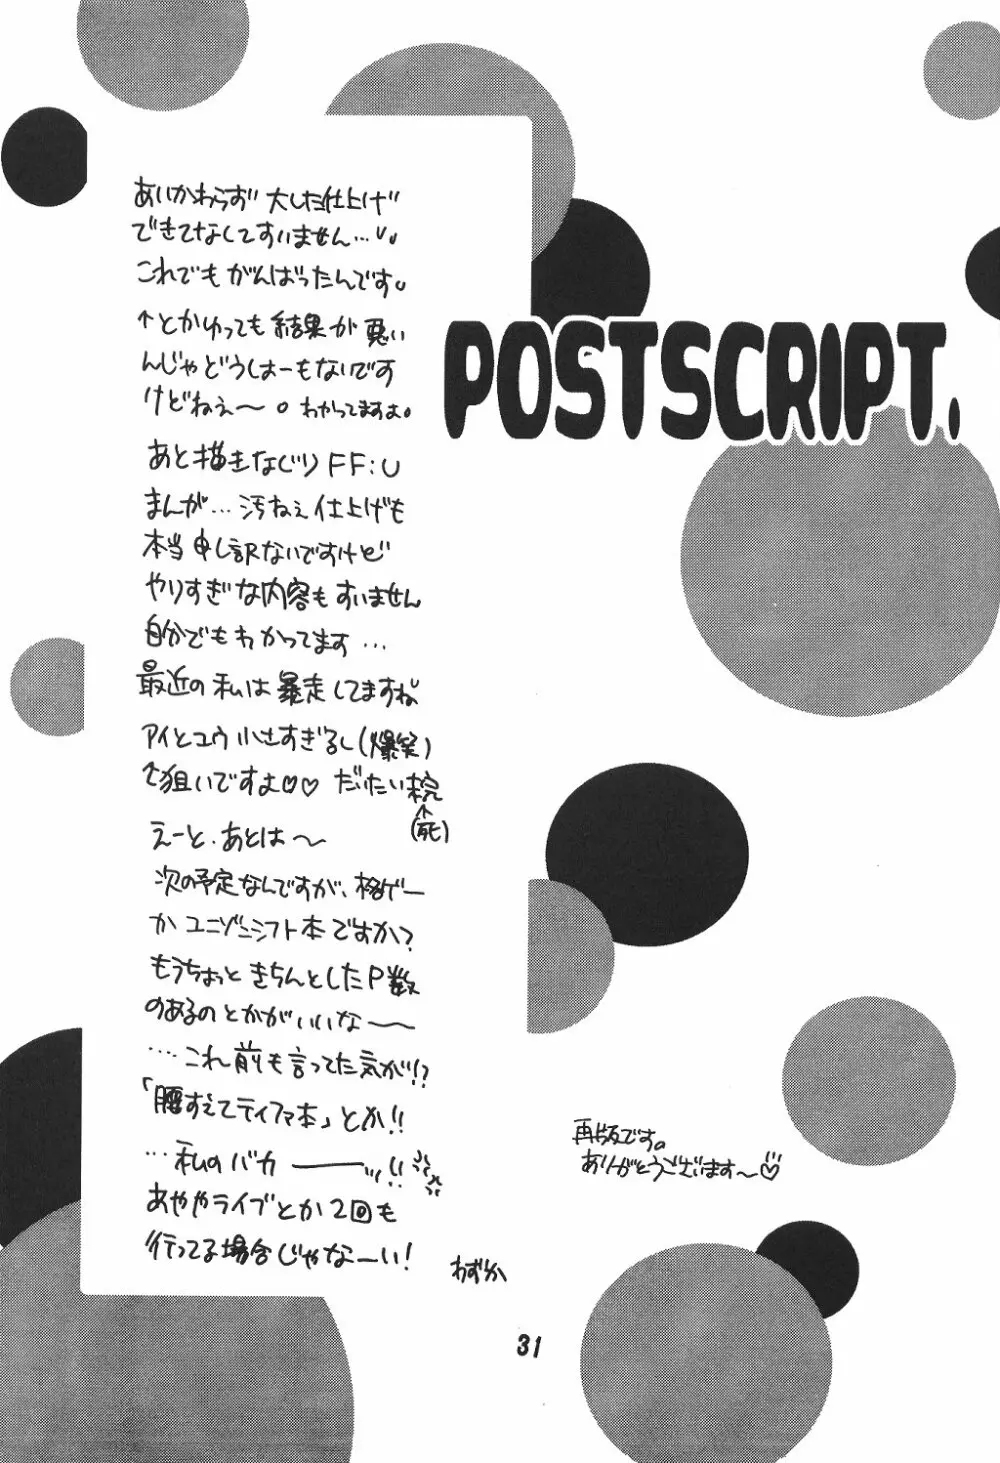 POSTSCRIPT.
あいかわらず大した仕上げ
できてなくてすいません…
これでもがんばったんです。
↑とかゆっても結果が悪い
んじゃどうしよーもないです
けどねぇ～。わかってますよ。
あと描きなぐりFF:U
まんが…汚ねぇ仕上げも
本当申し訳ないですけど
やりすぎな内容もすいません
自分でもわかってます…
最近の私は暴走してますね。
アイとユウ小さすぎるし(爆笑)
↑狙いですよ♡♡ だいたい
↑
(死)
えーと、あとは～
次の予定なんですが、格ゲー
かユニゾンシフト本ですか?
もうちょっときちんとしたP数
のあるのとかがいいな――
‥‥これ前も言ってた気が!?
「腰すえてティファ本」とか!!
…私のバカ――ッ!!
あややライブとか2回も
行ってる場合じゃなーい!
わずか
再版です。
ありがとうございます～♡
31